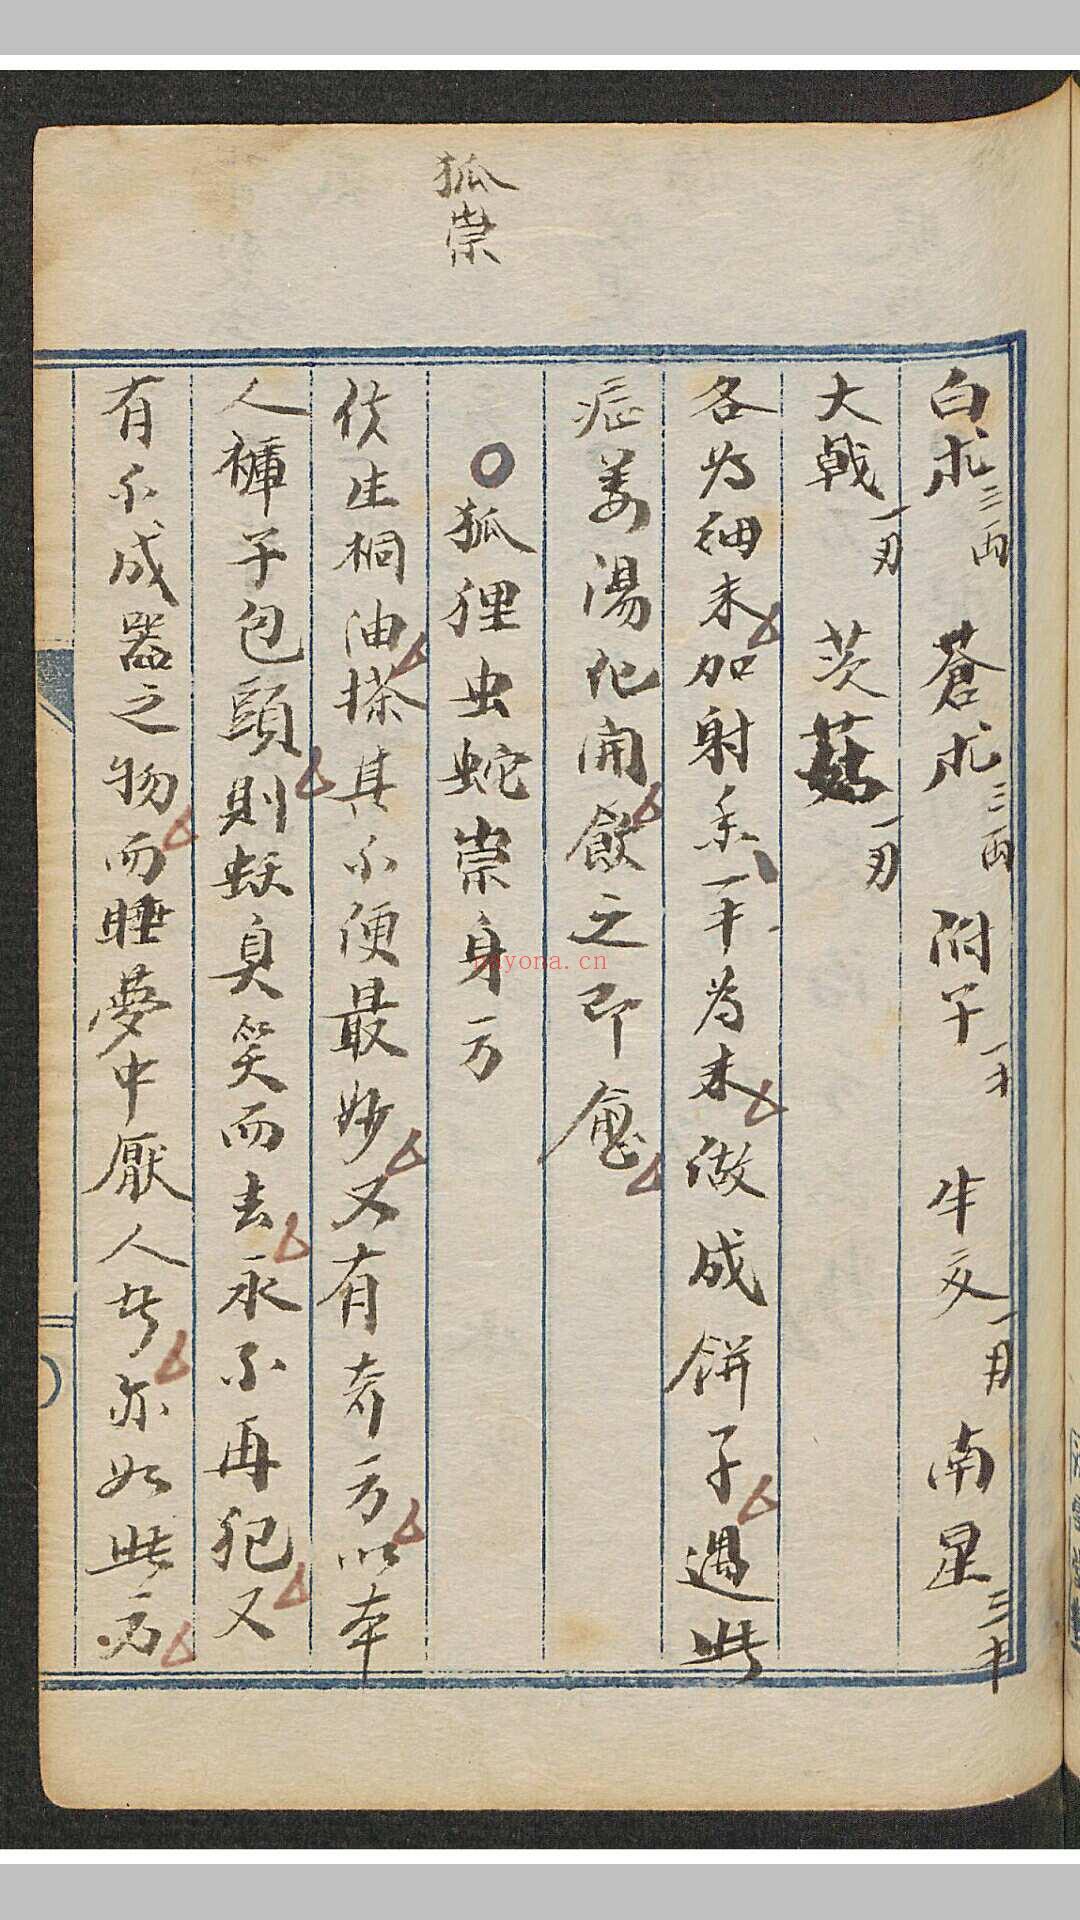 狐祟
白朮三両 蒼朮三両 附子一 牛 南星三
大戟一 茨菇一
各為細末加射香一 為末做成餅子遇此
症姜湯化開飲之即愈
狐狸虫蛇祟身方
生桐油搽其不便最妙又有奇方以本
人褲子包頭則妖臭笑而去永不再犯又
有不成器之物而睡夢中厭人者亦如此方
nayona.cn